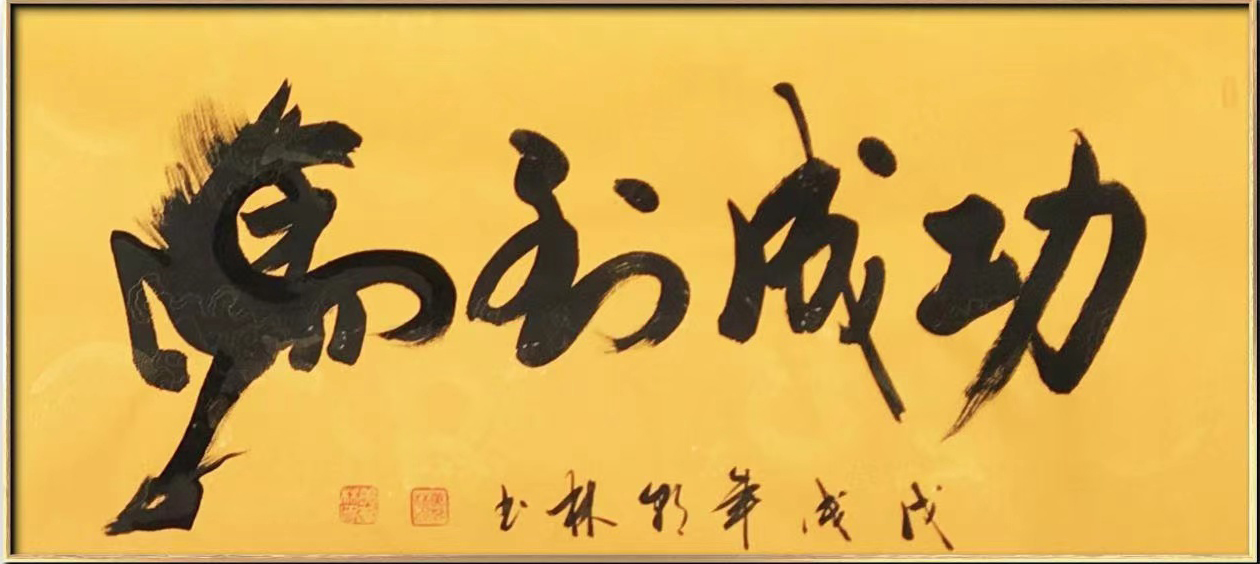 馬到成功
戊戌年林书